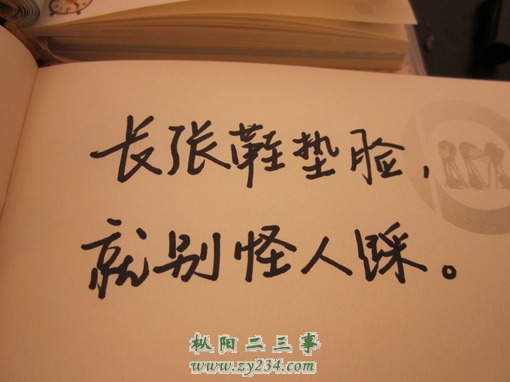 长张鞋垫脸，
就别怪人踩。
枞阳二三事
www.zy234.com